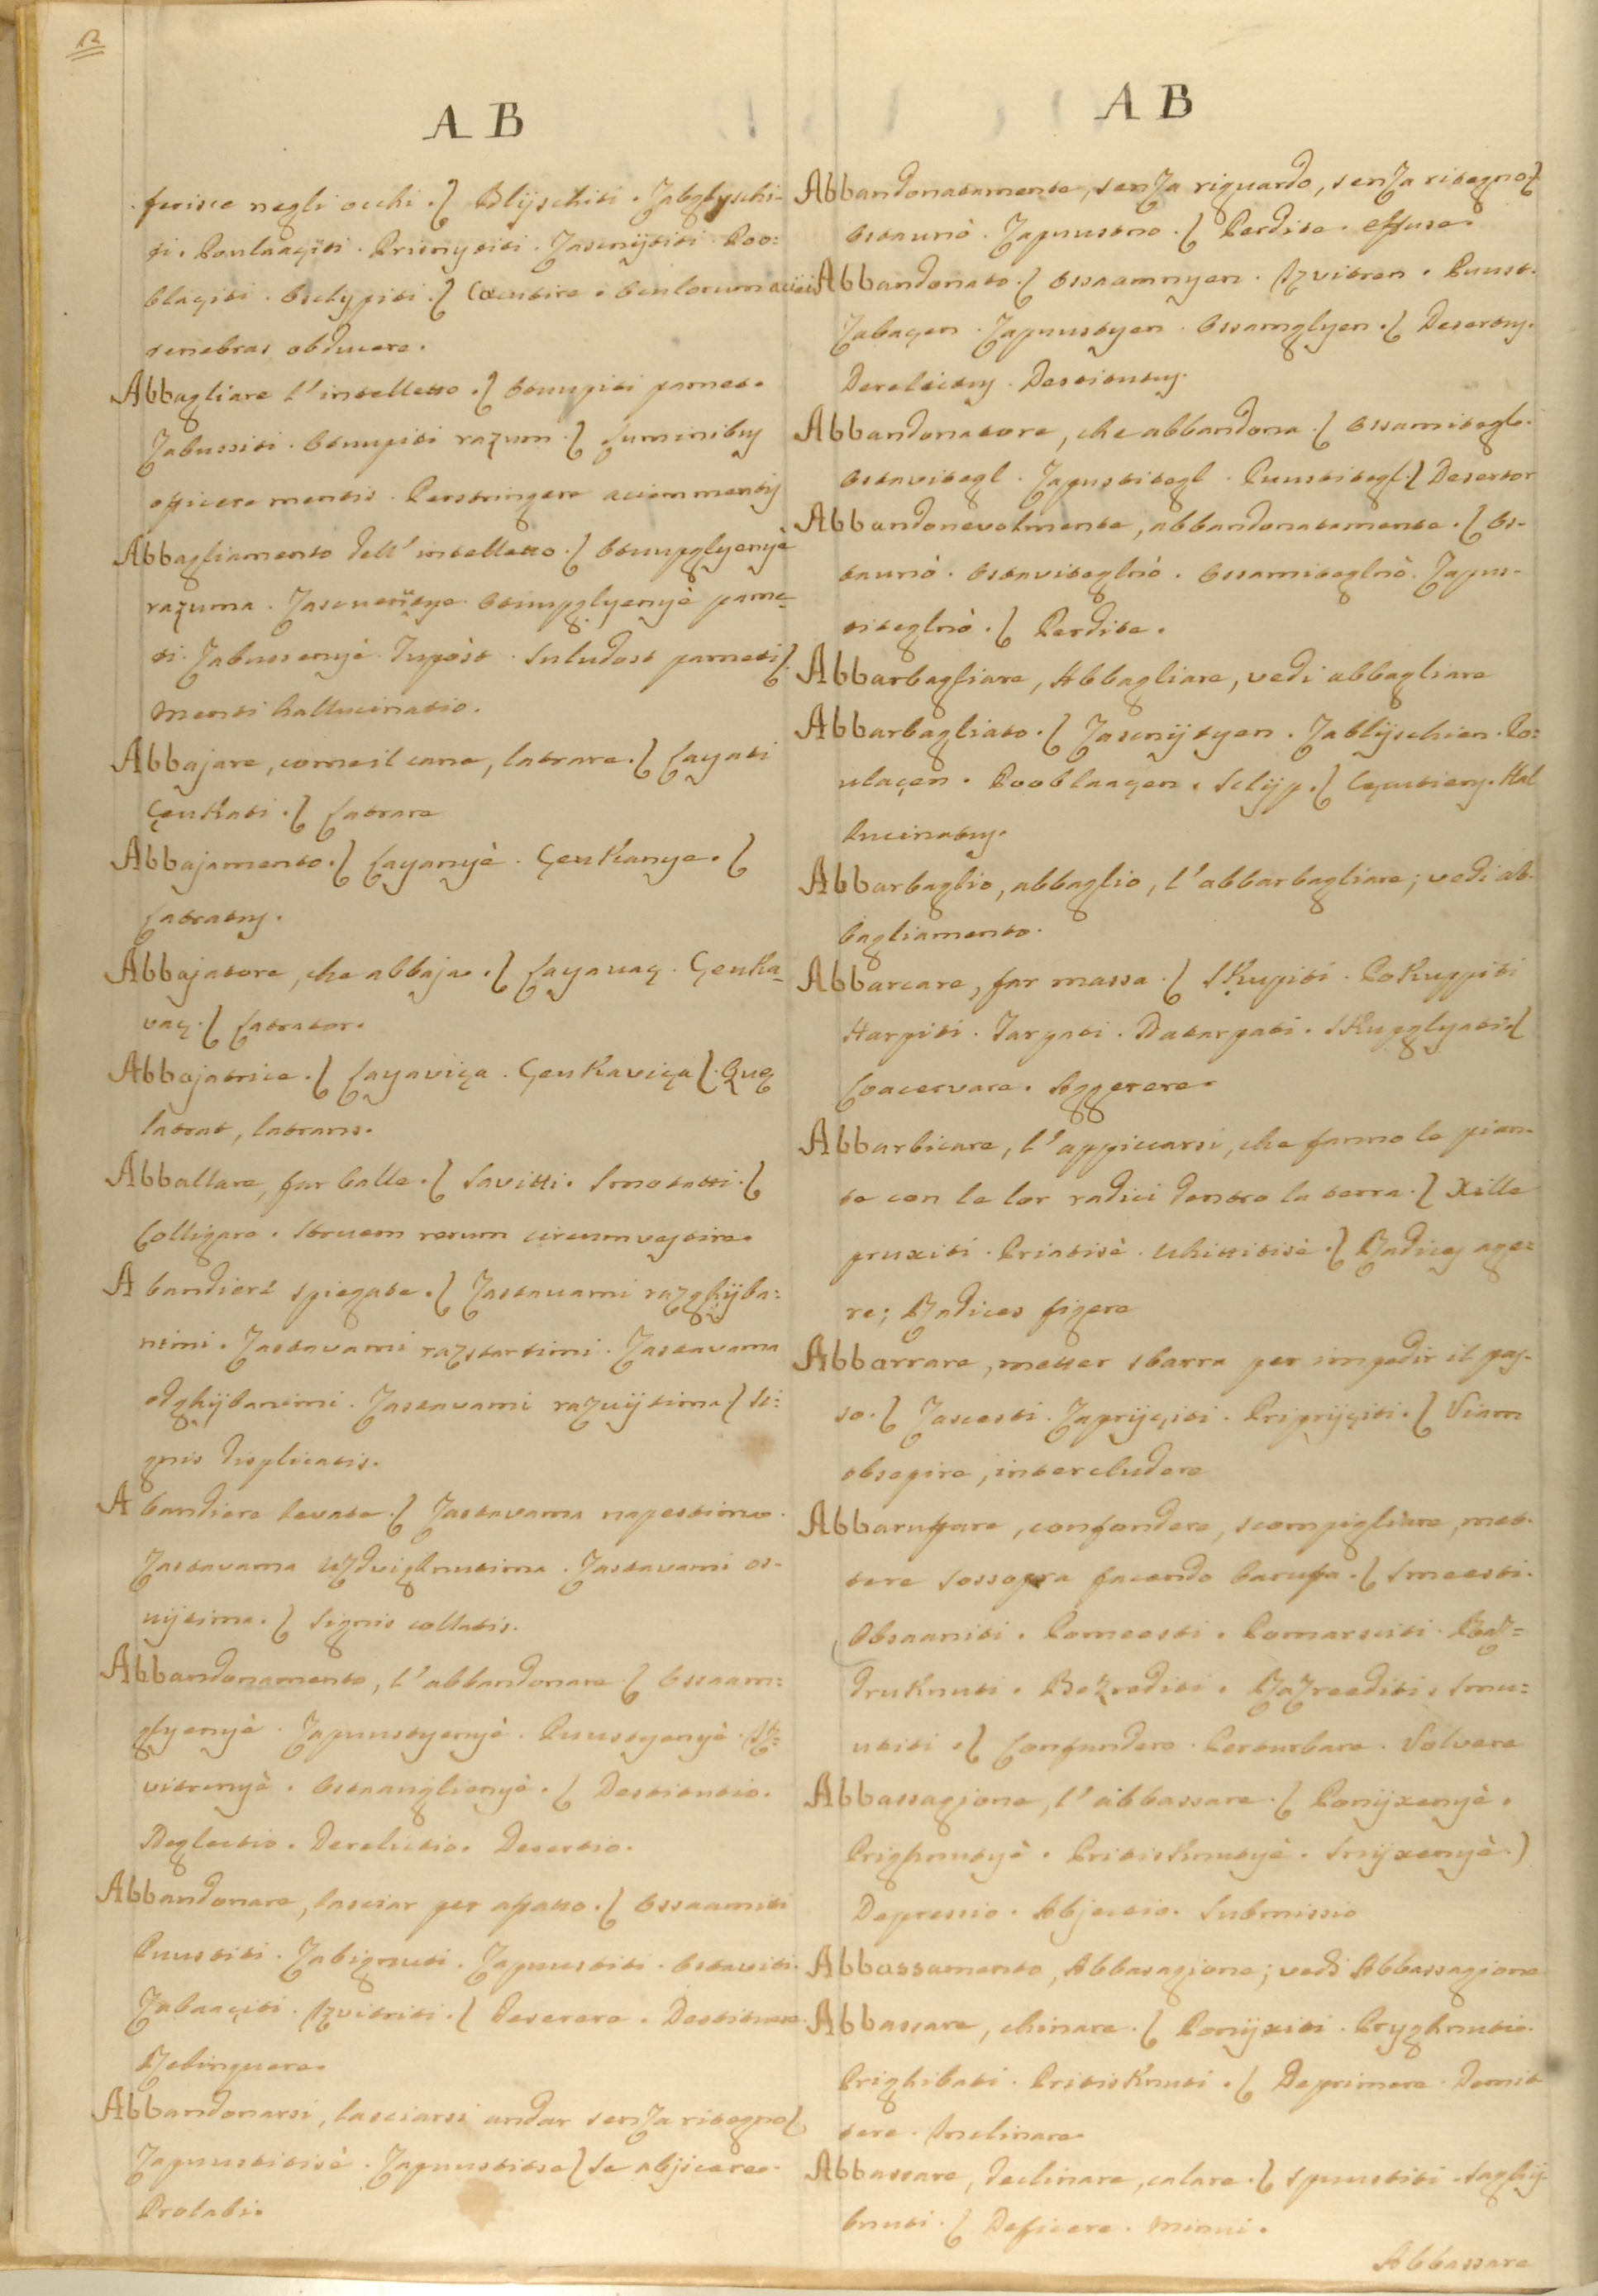 12
A B
ferisce negli occhi .{ Blyschiti . Zabglyschi-
ti . Poulaaçiti . Prisnytiti . Zascnijtiti Poo:
blaçiti . Osclypiti .{ Cæcutire . Oculorum aciei
tenebras obducere.
Abbagliare l'intelletto .{ Otuupiti pamet.
Zabussiti . Otuupiti razum .{ Luminibus
officere mentis . Perstringere aciem mentis
Abbagliamento dell' intelletto .{ Otuupglyenyè
razuma . Otuupglyenyè pame-
ti . Zabussenyè . Tupòst . Suludost pameti{
Mentis hallucinatio.
Abbajare, come il cane, latrare .{ Layati
Çeukati .{ Latrare
Abbajamento .{ Layanyè . Çeukanye .{
Latratus.
Abbajatore, che abbaja .{ Layauaç . Çeuka-
vaç .{ Latrator.
Abbajatrice .{ Layaviça . Çeukaviça {. Quæ
latrat, latrans.
Abballare, far balle .{ Savitti . Smotatti .{
Colligare . Struem rerum circumvestire.
A bandiere spiegate .{ Zastavami razghÿba:
nimi . Zastavami razstartimi . Zastavama
odghÿbanimi . Zastavami razvijtima { Si:
gnis displicatis.
A bandiere levate .{ Zastavama napestima.
Zastavama uzdvighnutima . Zastavami os-
vijtima .{ Signis collatis.
Abbandonamento, l'abbandonare { Ossaam:
glyenyè . Zapuustyenyè . Puustyenyè . Iz:
vitrenyè . Ostaauglienyè .{ Destitutio.
Neglectio . Derelictio . Desertio.
Abbandonare, lasciar per affatto .{ Ossaamiti
Puustiti . Zabignuti . Zapuustiti . Ostaviti.
Zabaaçiti . Izvitriti .{ Deserere . Destituere.
Relinquere.
Abbandonarsi, lasciarsi andar senza ritegno{
Zapuustitisè . Zapuustitse { Se abjicere.
Prolabi.
A B
Abbandonatamente, senza riguardo, senza ritegno{
Ostaunò . Zapuustno .{ Perdite . Effuse.
Abbandonato .{ Ossaamnyen . Izvitren . Puust.
Zabaçen . Zapuustyen . Ossamglyen .{ Desertus.
Derelictus . Destitutus.
Abbandonatore, che abbandona .{ Ossamitegl.
Ostavitegl . Zapustitegl . Puustitegl .{ Desertor
Abbandonevolmente, abbandonatamente .{ Os-
taunò . Ostaviteglnò . Ossamiteglnò . Zapus-
titeglnò .{ Perdite.
Abbarbagliare, Abbagliare, vedi abbagliare
Abbarbagliato .{ Zascnijtyen . Zablijschien . Po:
ulaçen . Pooblaaçen . Sclijp .{ Cæcutiens . Hal
lucinatus.
Abbarbaglio, abbaglio, l'abbarbagliare; vedi ab-
bagliamento.
Abbarcare, far massa .{ Skupiti . Pokuppiti
Harpiti . Targati . Datarpati . Skupglyati{
Coacervare . Aggerere.
Abbarbicare, l'appiccarsi, che fanno le pian-
te con le lor radici dentro la terra .{ Xille
pruxiti . Priatisè . Uhittitisè .{ Radices age:
re; Radices figere
Abbarrare, metter sbarra per impedir il pas-
so .{ Zascesti . Zaprijçiti . Priprijçiti .{ Viam
obsepire, intercludere
Abbaruffare, confondere, scompigliare, met-
tere sossopra facendo baruffa .{ Smeesti.
Obsaaniti . Pomeesti . Pomarsciti . Raz=
druknuti . Bezrediti . Razreediti . Smu:
utiti .{ Confundere . Perturbare . Solvere
Abbassagione, l'abbassare .{ Ponijxenyè .
Prighnutyè . Pritisknutyè . Snijxenyè .)
Depressio . Abjectio . Submissio
Abbassamento, Abbasagione; vedi Abbassagione
Abbassare, chinare .{ Ponijxiti . Pryghnuti.
Prighibati . Pritisknuti .{ Deprimere . Demit
tere . Inclinare
Abbassare, declinare, calare .{ Spuustiti . Saghij-
bnuti .{ Deficere . Minui .
Abbassare